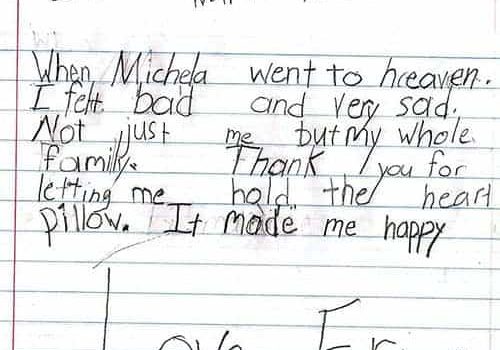 When Michela went to heaven.
I felt bad and very sad.
Not just me but my whole
family. Thank you for
letting me hold the heart
pillow. It made me happy
Love